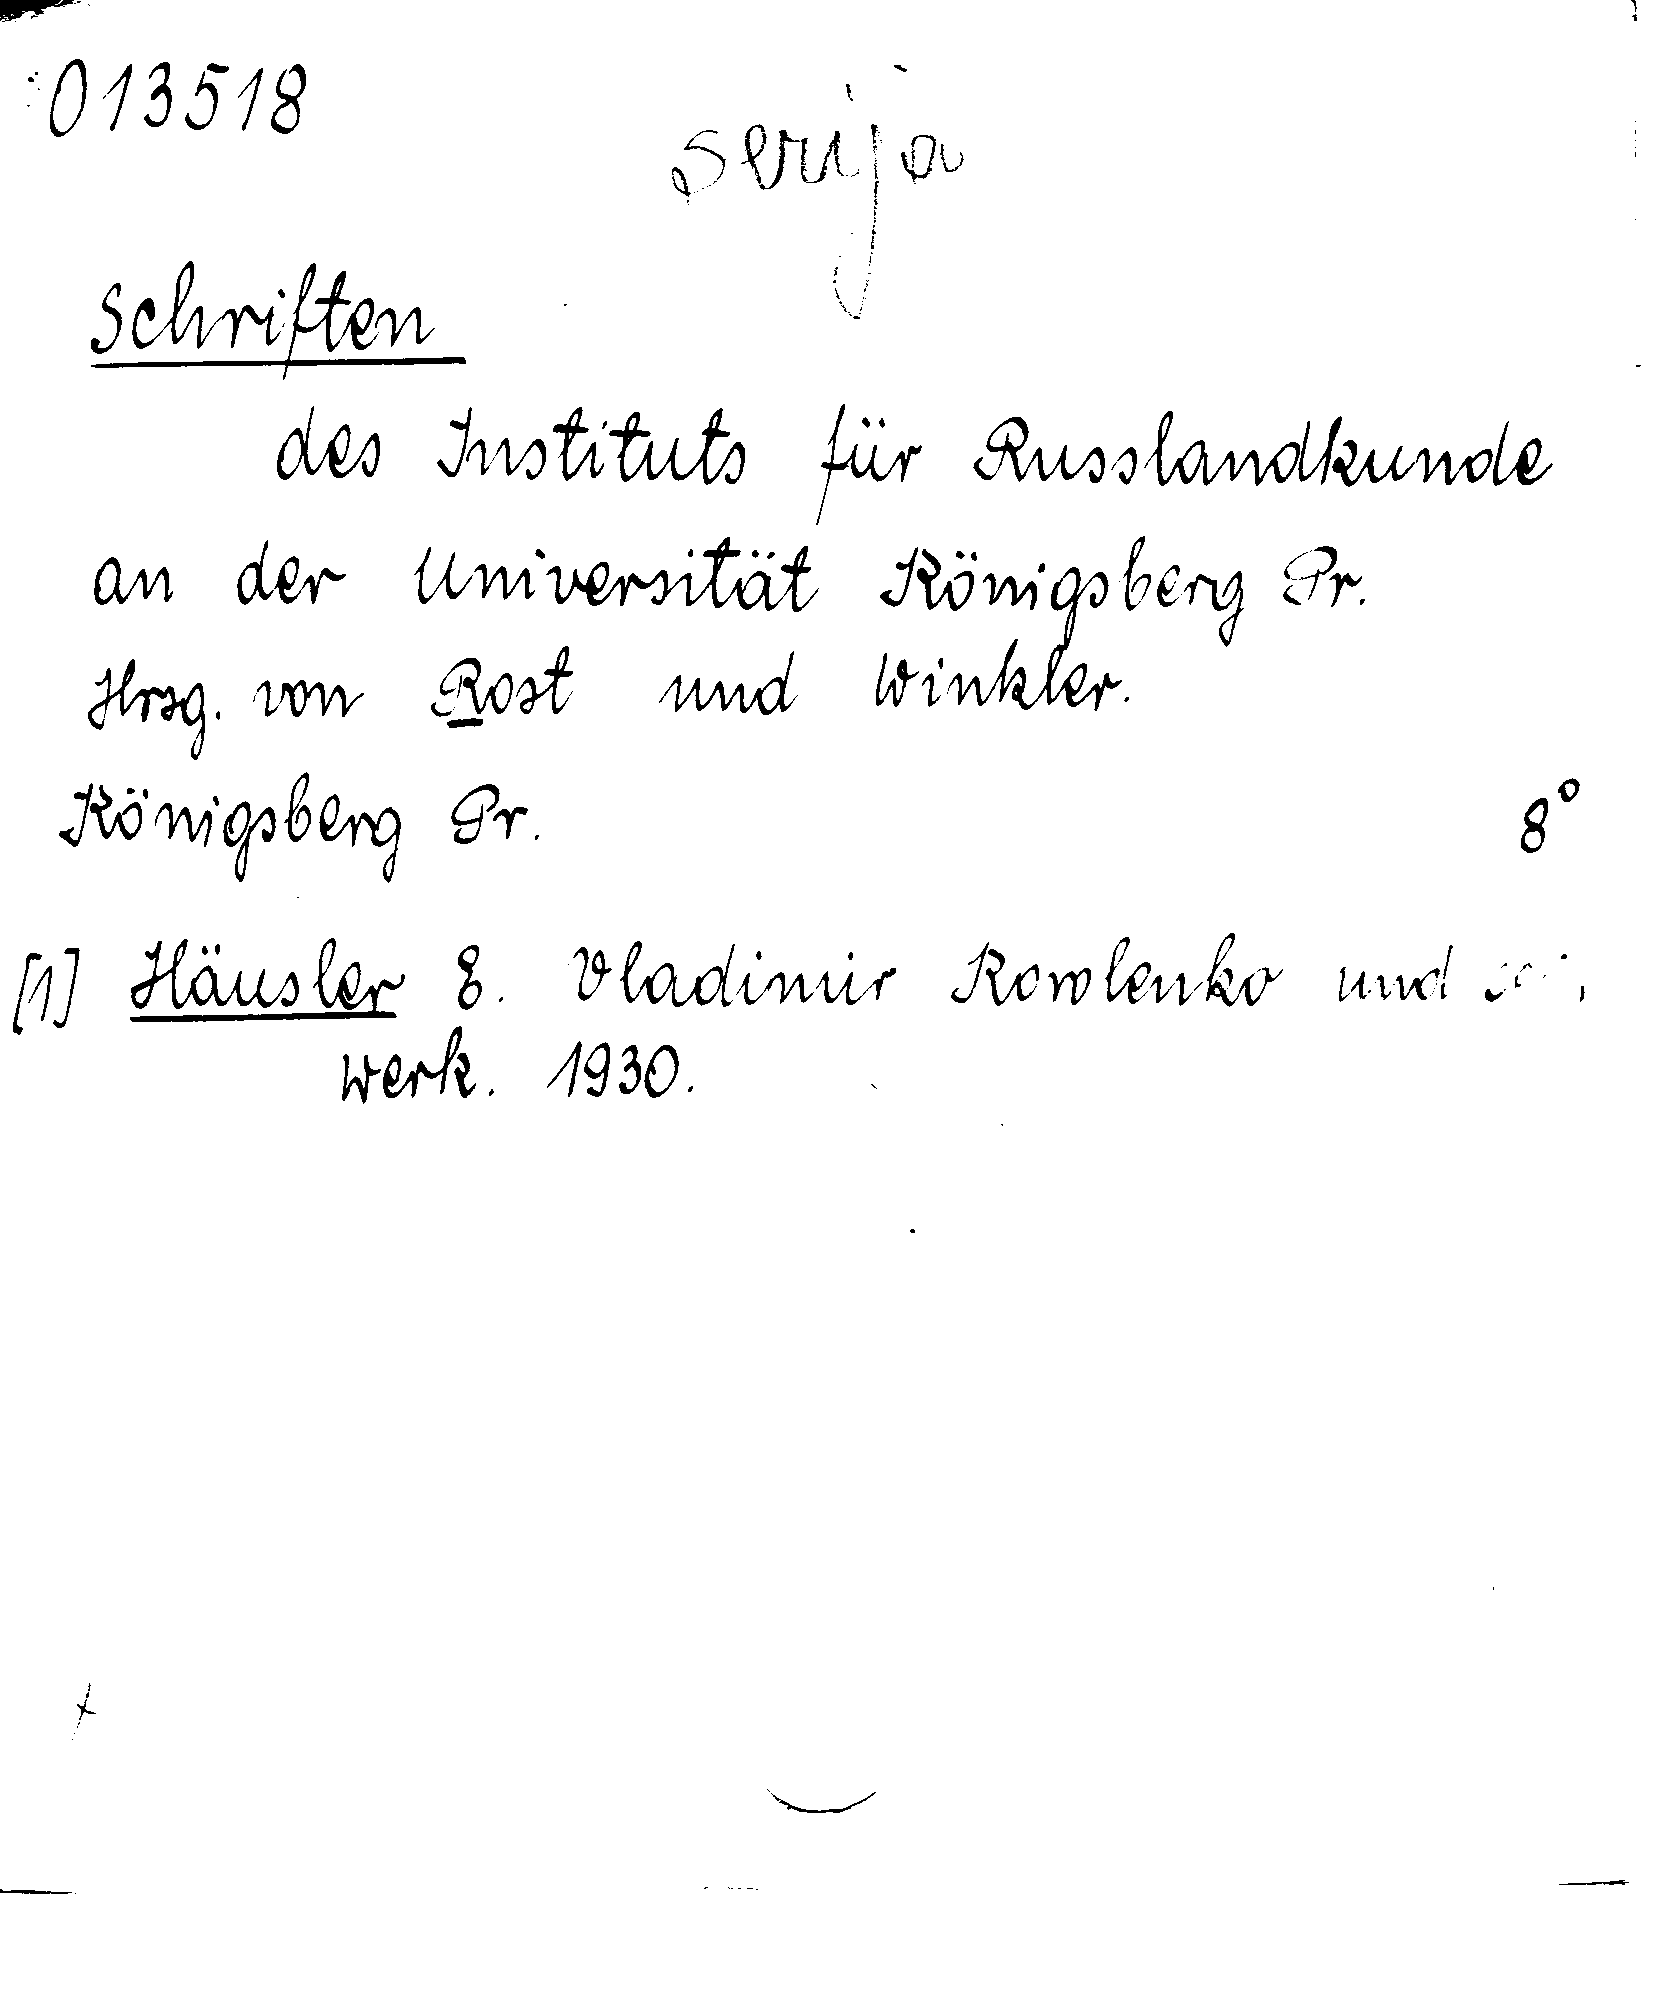 013518
serija
Schriften
des Instituts für Russlandkunde
an der Universität Königsberg Pr.
Hrsg. von Rost und Winkler.
Königsberg Pr.
8°
[1] Häusler E. Vladimir Korolenko und
werk. 1930.